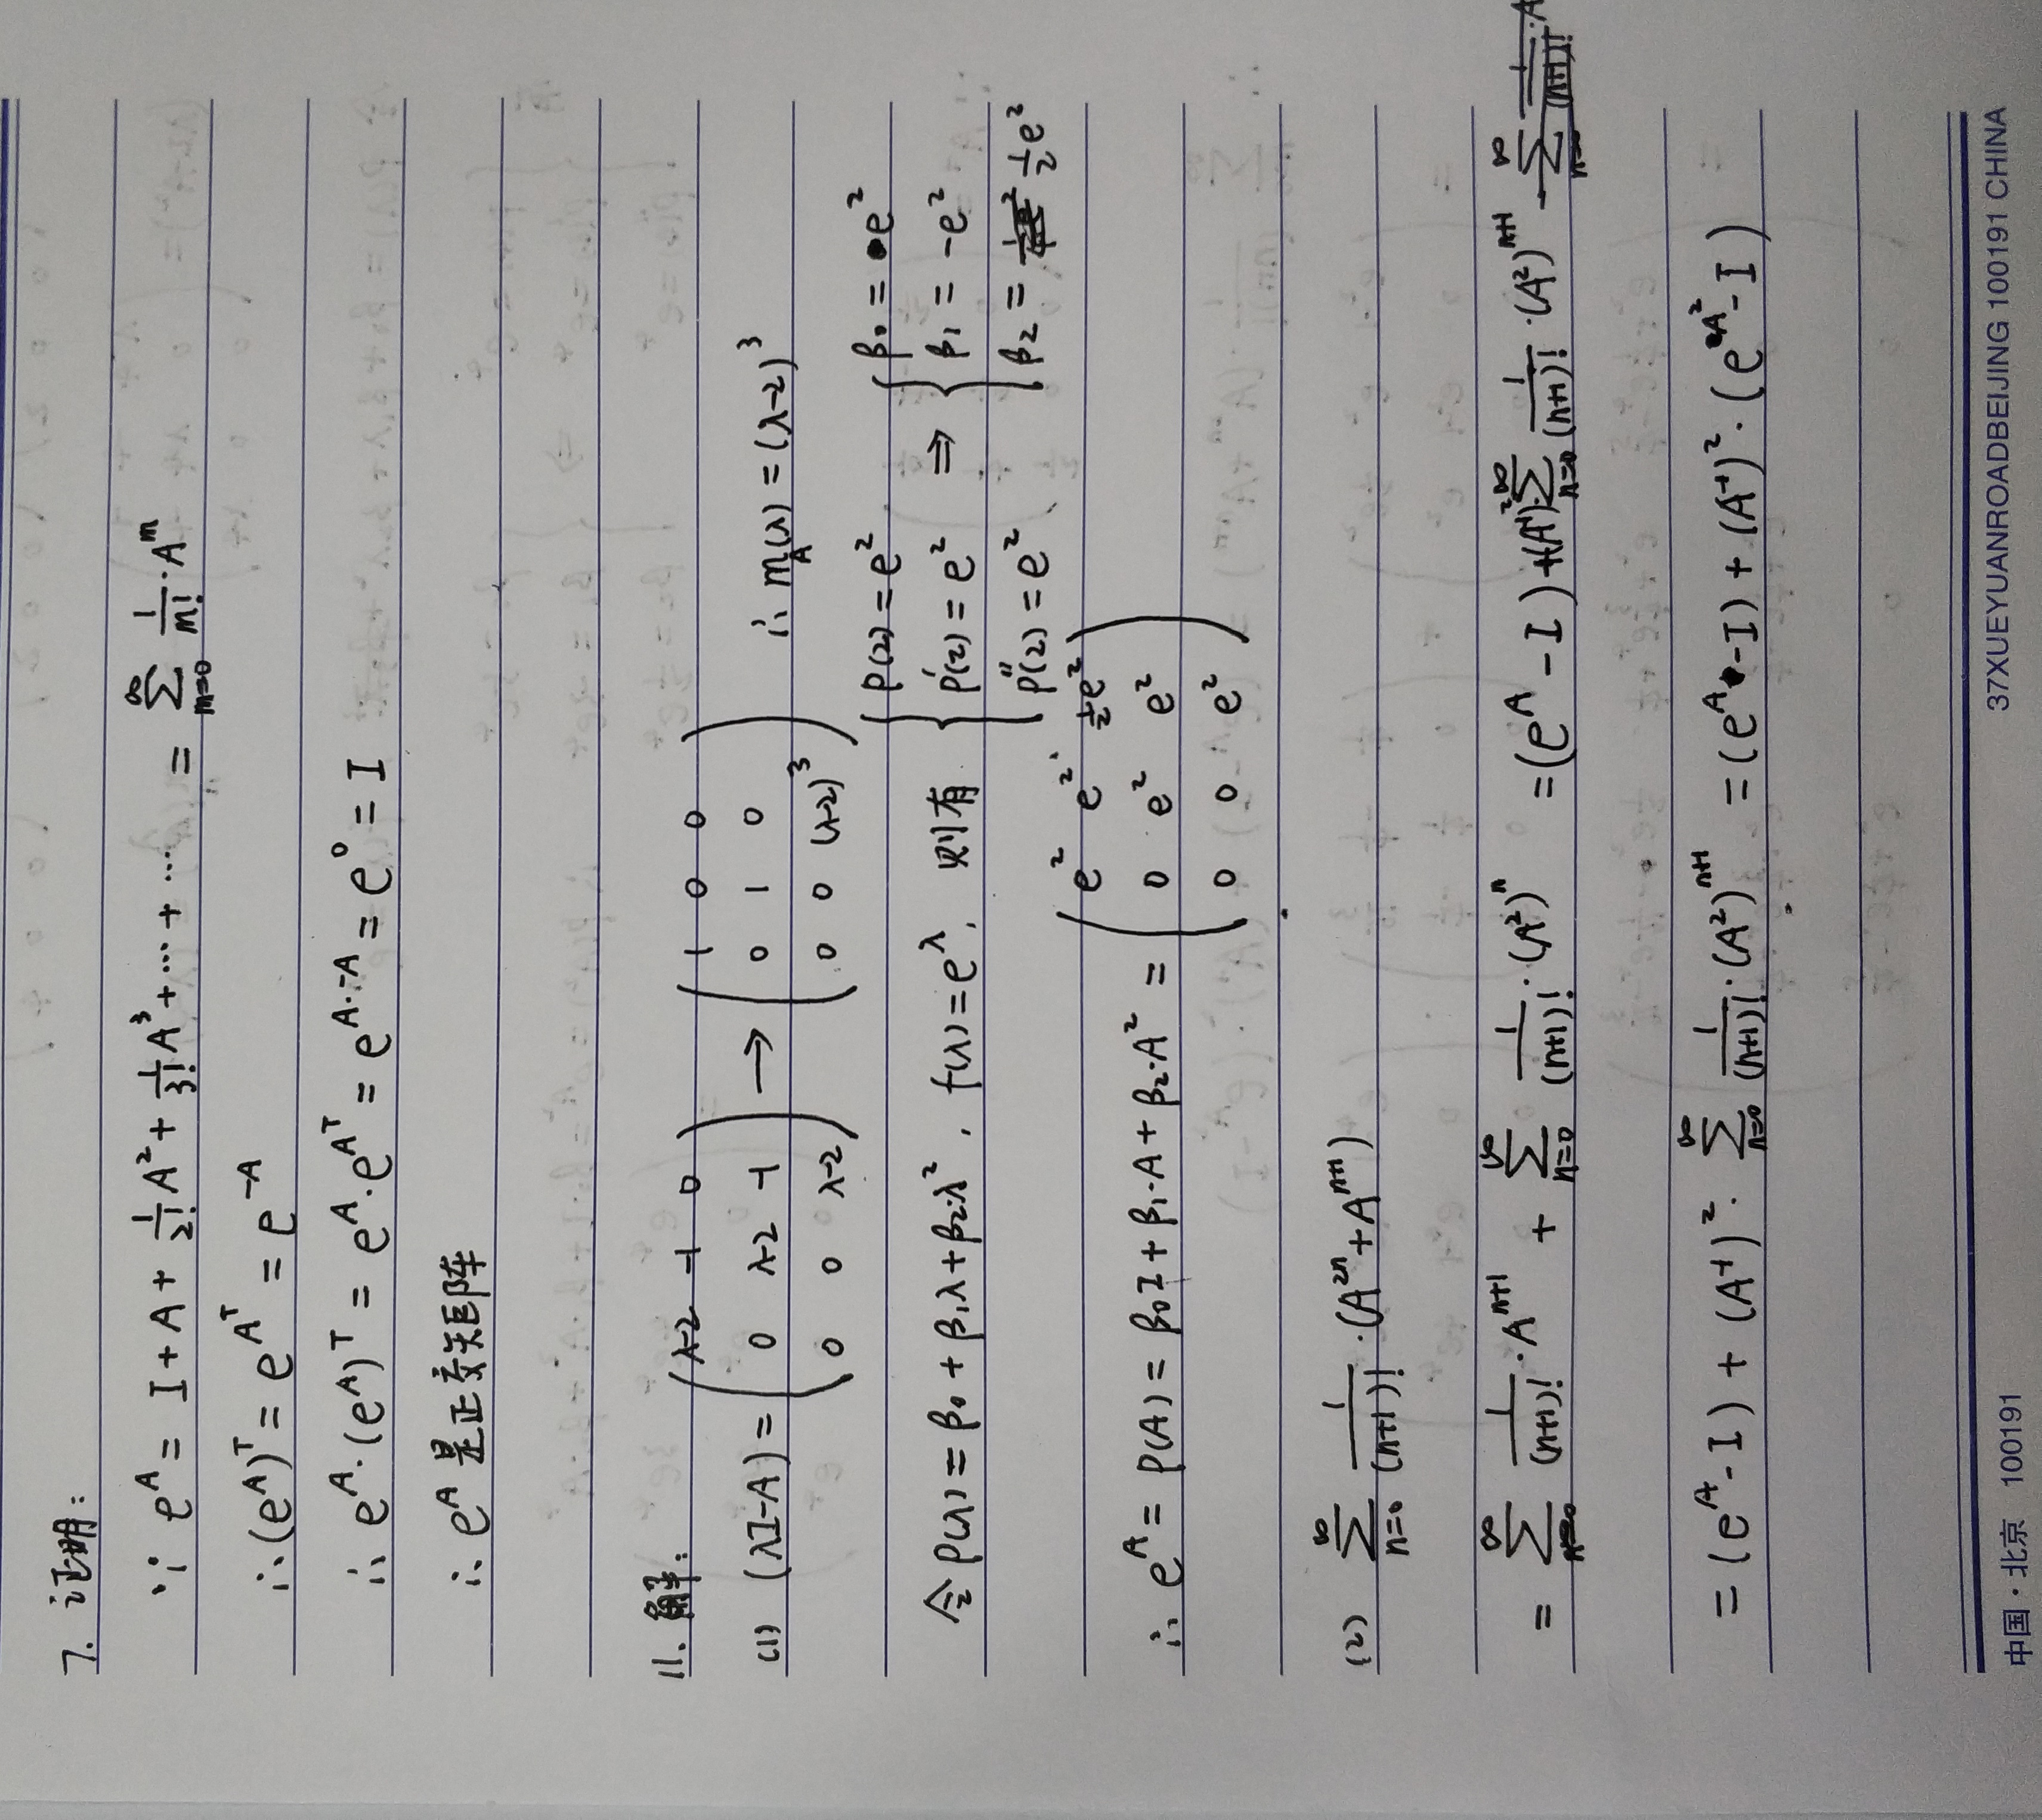 7. 证明:
∵ e^A = I + A + 1/2! A² + 1/3! A³ + ... + ... = ∑_{m=0}^∞ 1/m! · A^m
∴ (e^A)^T = e^{A^T} = e^{-A}
∴ e^A · (e^A)^T = e^A · e^{A^T} = e^{A·-A} = e^0 = I
∴ e^A 是正交矩阵
11. 解:
(1) (λI-A) = (λ-2 -1 0; 0 λ-2 -1; 0 0 λ-2) → (1 0 0; 0 1 0; 0 0 (λ-2)³) ∴ m_A(λ) = (λ-2)³
令 p(λ) = β₀ + β₁λ + β₂·λ², f(λ) = e^λ, 则有 { p(2) = e²; p'(2) = e²; p''(2) = e² ⇒ { β₀ = e²; β₁ = -e²; β₂ = 1/2 e²
∴ e^A = p(A) = β₀I + β₁·A + β₂·A² = (e² e² 1/2 e²; 0 e² e²; 0 0 e²)
(2) ∑_{n=0}^∞ 1/(n+1)! · (A^{2n} + A^{n+1})
= ∑_{n=0}^∞ 1/(n+1)! · A^{n+1} + ∑_{n=0}^∞ 1/(n+1)! · (A²)^n = (e^A - I) + (A^{-1})² ∑_{n=0}^∞ 1/(n+1)! · (A²)^{n+1}
= (e^A - I) + (A^{-1})² · ∑_{n=0}^∞ 1/(n+1)! · (A²)^{n+1} = (e^A - I) + (A^{-1})² · (e^{A²} - I)
中国·北京 100191 37XUEYUANROADBEIJING 100191 CHINA